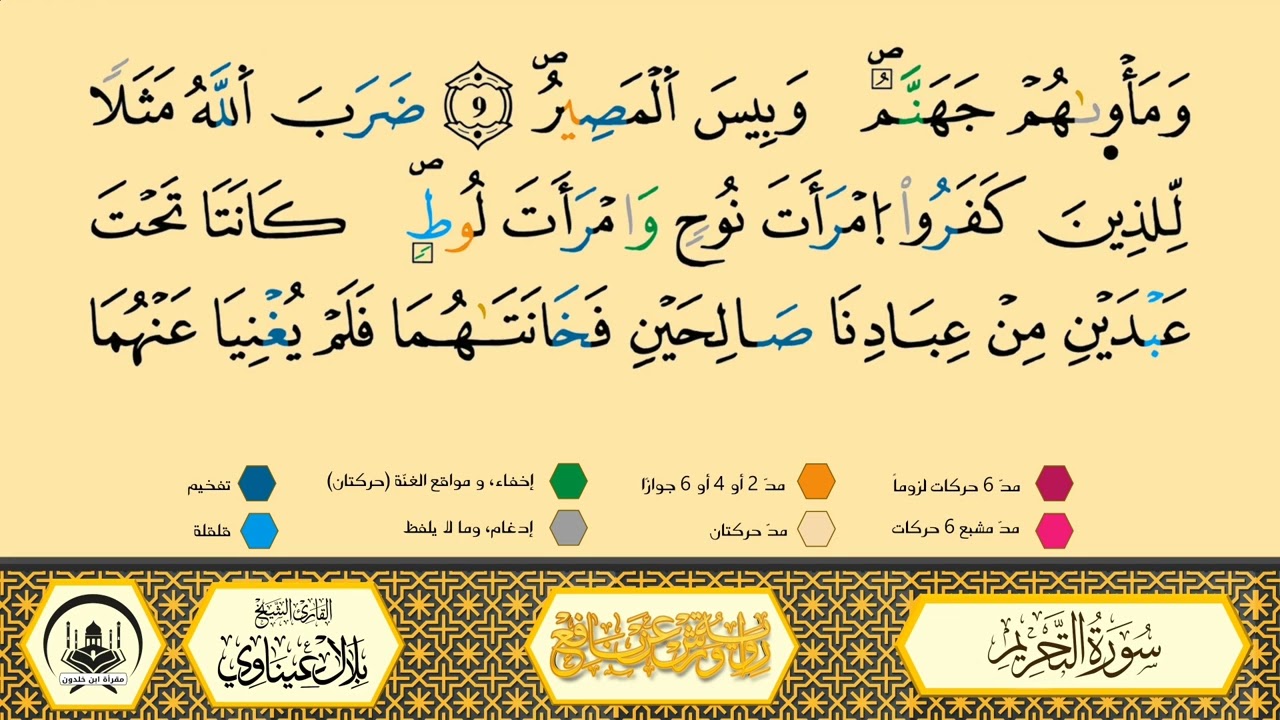 وَمَأْوٜىٰهُمْ جَهَنَّمُ ۖ وَبِيسَ اَ۬لْمَصِيرُ ۖ 9 ضَرَبَ اَ۬للَّهُ مَثَلاٗ
لِّلذِينَ كَفَرُواْ اُ۪مْرَأَتَ نُوحٖ وَامْرَأَتَ لُوطٖ ۖ كَانَتَا تَحْتَ
عَبْدَيْنِ مِنْ عِبَادِنَا صَالِحَيْنِ فَخَانَتَـٰهُمَا فَلَمْ يُغْنِيَا عَنْهُمَا
مدّ 6 حركات لزوماً
مدّ 2 أو 4 أو 6 جوازًا
إخفاء، و مواقع الغنّة (حركتان)
تفخيم
مدّ مشبع 6 حركات
مدّ حركتان
إدغام، وما لا يلفظ
قلقلة
سُورَةُ التَّحْرِيمِ
رواية ورش عن نافع
القارئ الشيخ
بلال عيناوي
مقرأة ابن خلدون